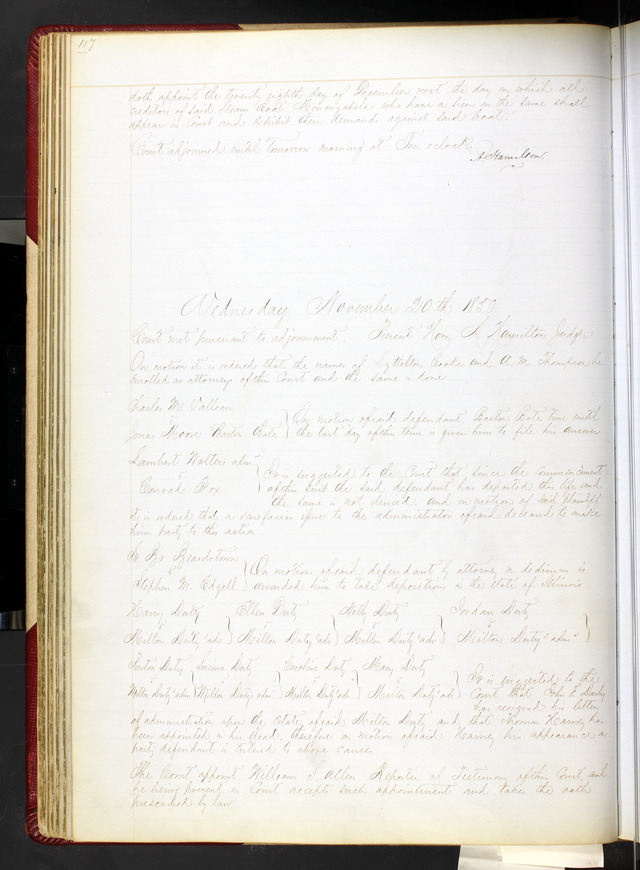 117
doth appoint the twenty eighth day of December next the day on which all
creditors of said Steam Boat Monongahela who have a lien on the same shall
appear in Court and exhibit their demand against said boat.
Court adjourned until tomorrow morning at Ten oclock.
A. Hamilton.
Wednesday November 20th 1850
Court met pursuant to adjournment. Present Hon. A Hamilton Judge
On motion it is ordered that the names of Lyttleton Cooke and A. M. Thompson be
enrolled as attorneys of this Court and the same is done
Charles M. Valleau
vs
Jonas Moore Barton Bate } On motion of said defendant Barton Bate, time until
the last day of this term is given him to file his answer
Lambert Walters adm
vs
Conrad Fox } It is suggested to the Court that since the commencement
of this suit the said defendant has departed this life and
the same is not denied. and on motion of said Plaintiff
it is ordered that a issue to the administrator of said deceased to make
him party to this action
S. Bt Beardstown
vs
Stephen M. Edgell } On motion of said defendant by attorney a dedimus is
awarded him to take depositions in the state of Illinois
Harry Duty Ellen Duty Nelly Duty Jordan Duty
vs vs vs vs
Milton Duty's adm } Milton Duty's adm } Milton Duty's adm } Milton Duty's adm }
Preston Duty Lucinda Duty Caroline Duty Mary Duty
vs vs vs vs
Milton Duty's adm } Milton Duty's adm } Milton Duty's adm } Milton Duty's adm } It is suggested to the
Court that John F. Darby
has resigned his letters
of administration upon the estate of said Milton Duty and that Thomas Harney has
been appointed in his stead. Therefore on motion of said Harney his appearance as
party defendant is entered to above causes
The Court appoint William S. Allen Reporter of Testimony of this Court, and
he being present in Court accepts such appointment and takes the oath
prescribed by law